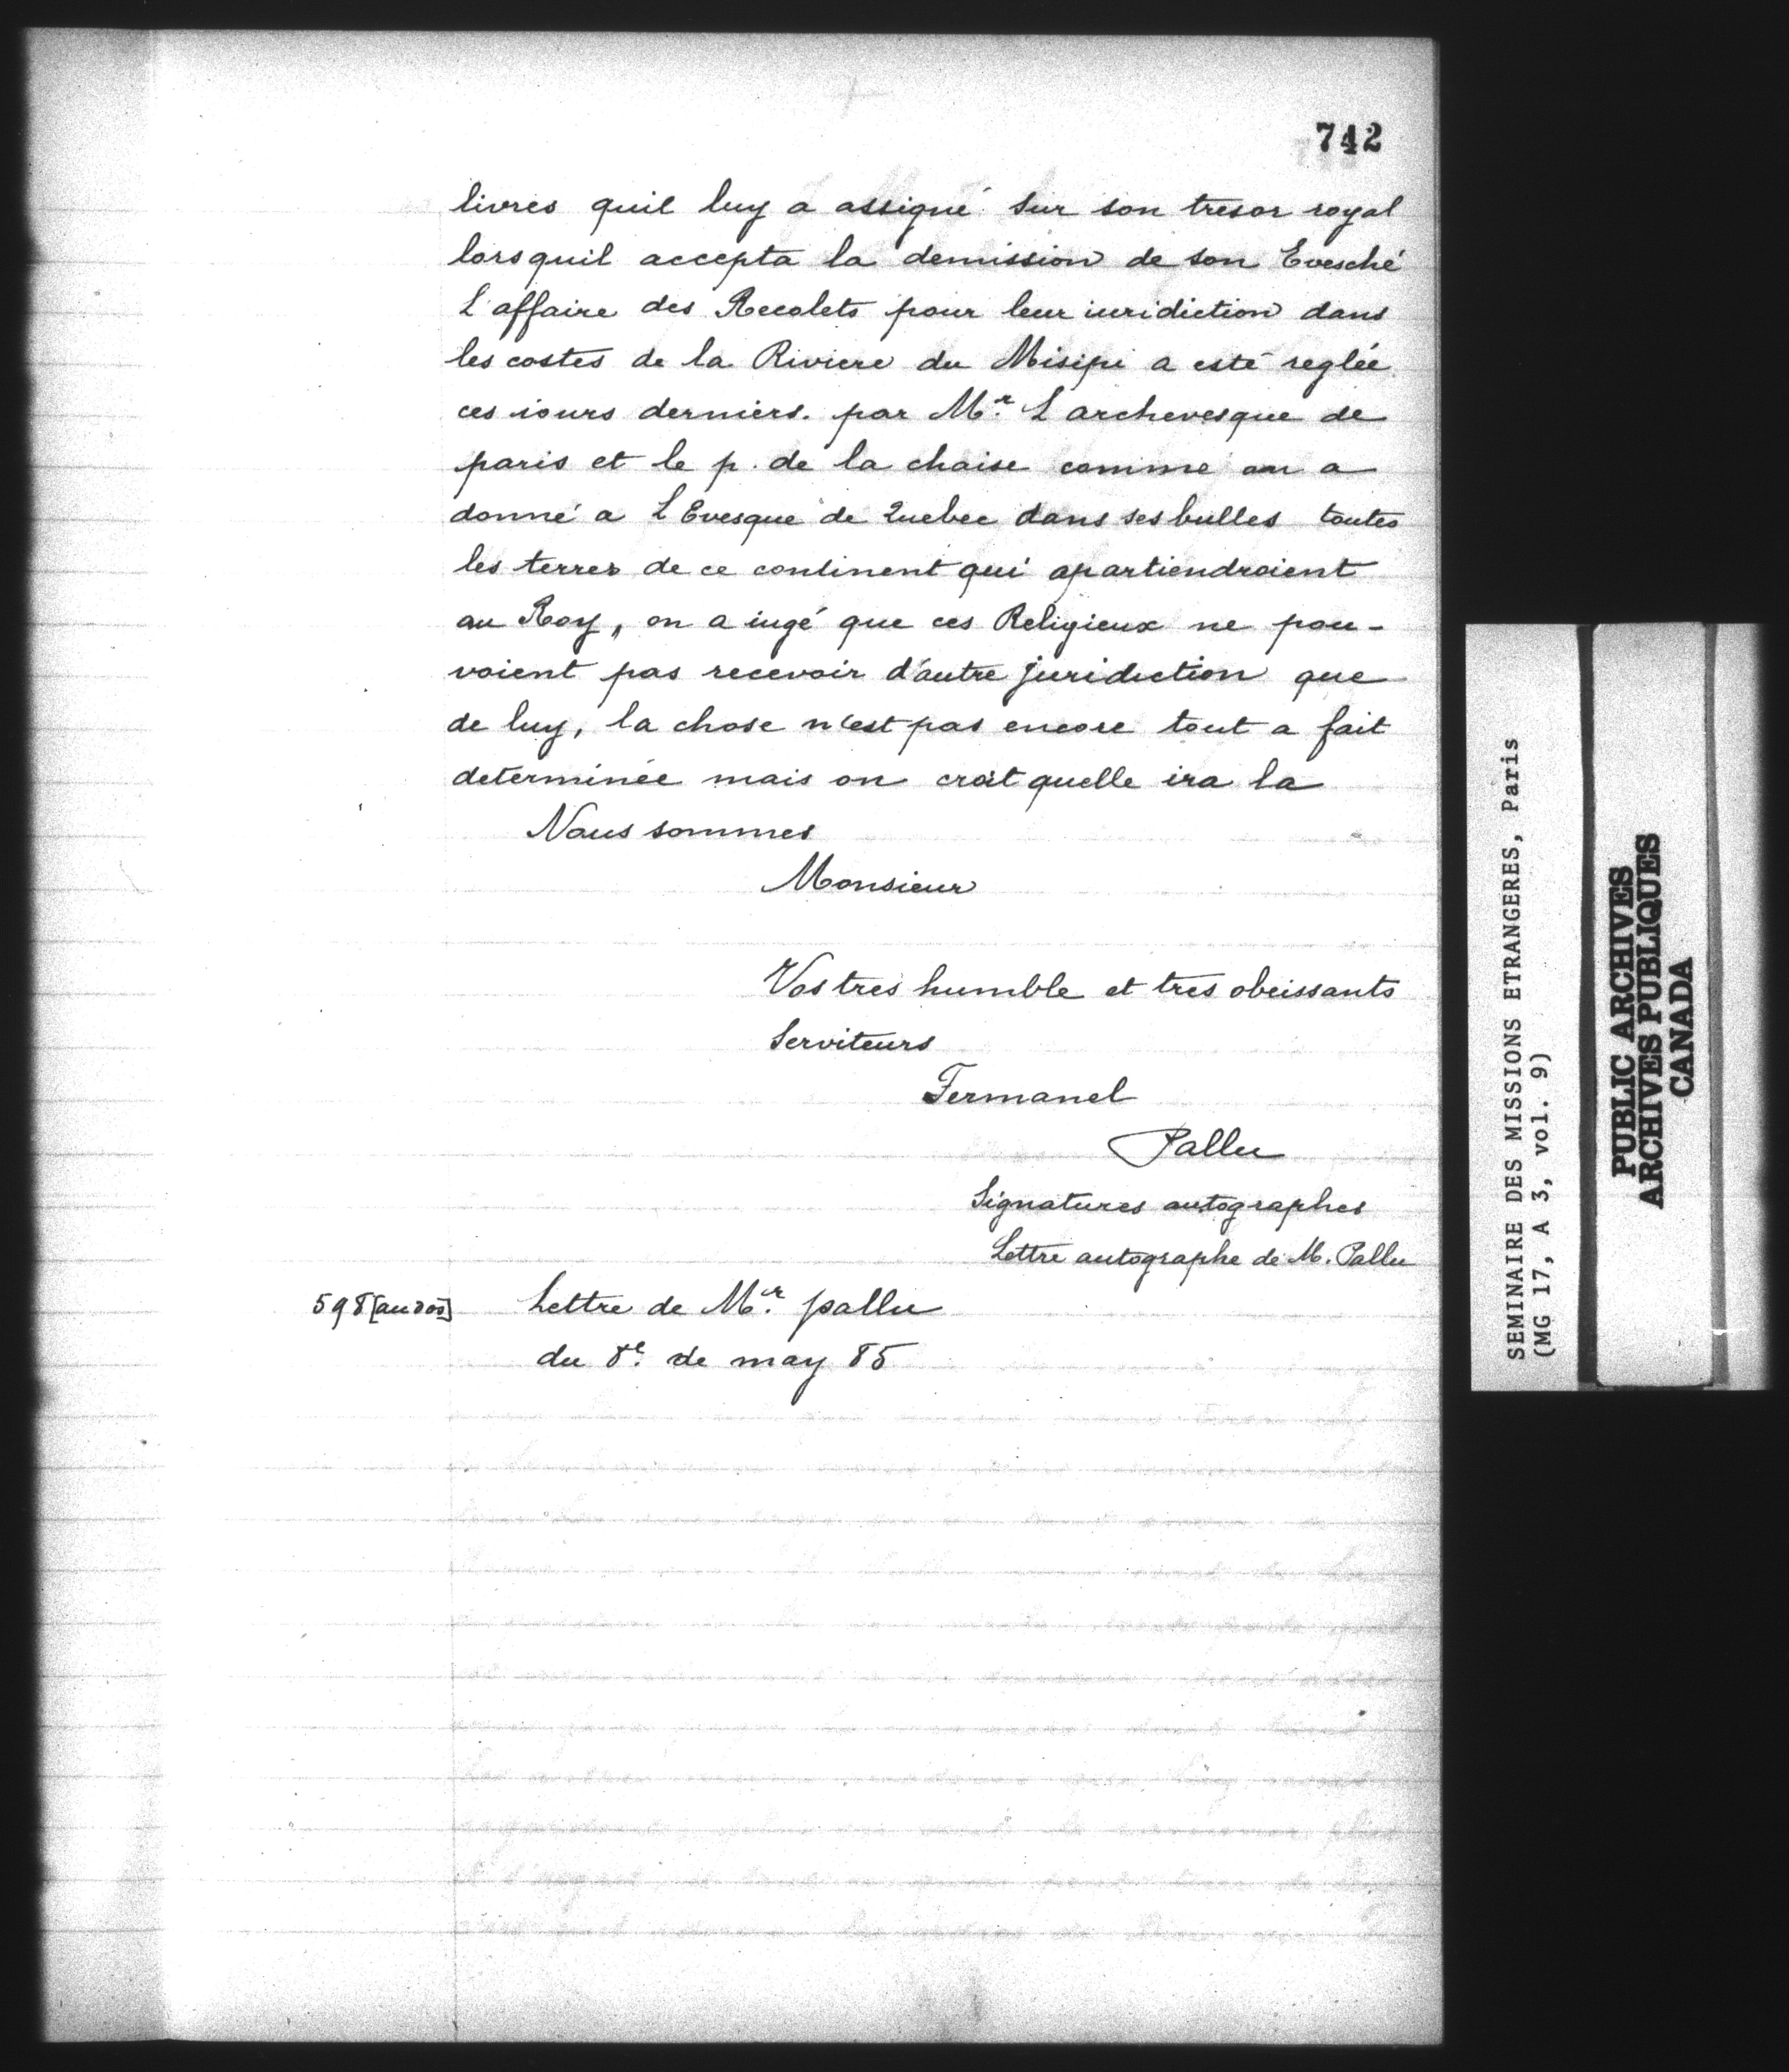 742
livres quil luy a assigné sur son tresor royal
lorsquil accepta la demission de son Evesché
L'affaire des Recolets pour leur iuridiction dans
les costes de la Riviere du Misipi a esté reglée
ces iours derniers. par Mr. L archevesque de
paris et le p. de la chaise comme on a
donné a L Evesque de Quebec dans ses bulles toutes
les terres de ce continent qui apartiendroient
au Roy, on a iugé que ces Religieux ne pou-
voient pas recevoir d'autre juridiction que
de luy, la chose n'est pas encore tout a fait
determinée mais on croit quelle ira la
Nous sommes
Monsieur
Vos tres humble et tres obeissants
Serviteurs
Fermanel
Pallu
Signatures autographes
Lettre autographe de M. Pallu
598 [au dos] Lettre de Mr. pallu
du 8e. de may 85
SEMINAIRE DES MISSIONS ETRANGERES, Paris
(MG 17, A 3, vol. 9)
PUBLIC ARCHIVES
ARCHIVES PUBLIQUES
CANADA